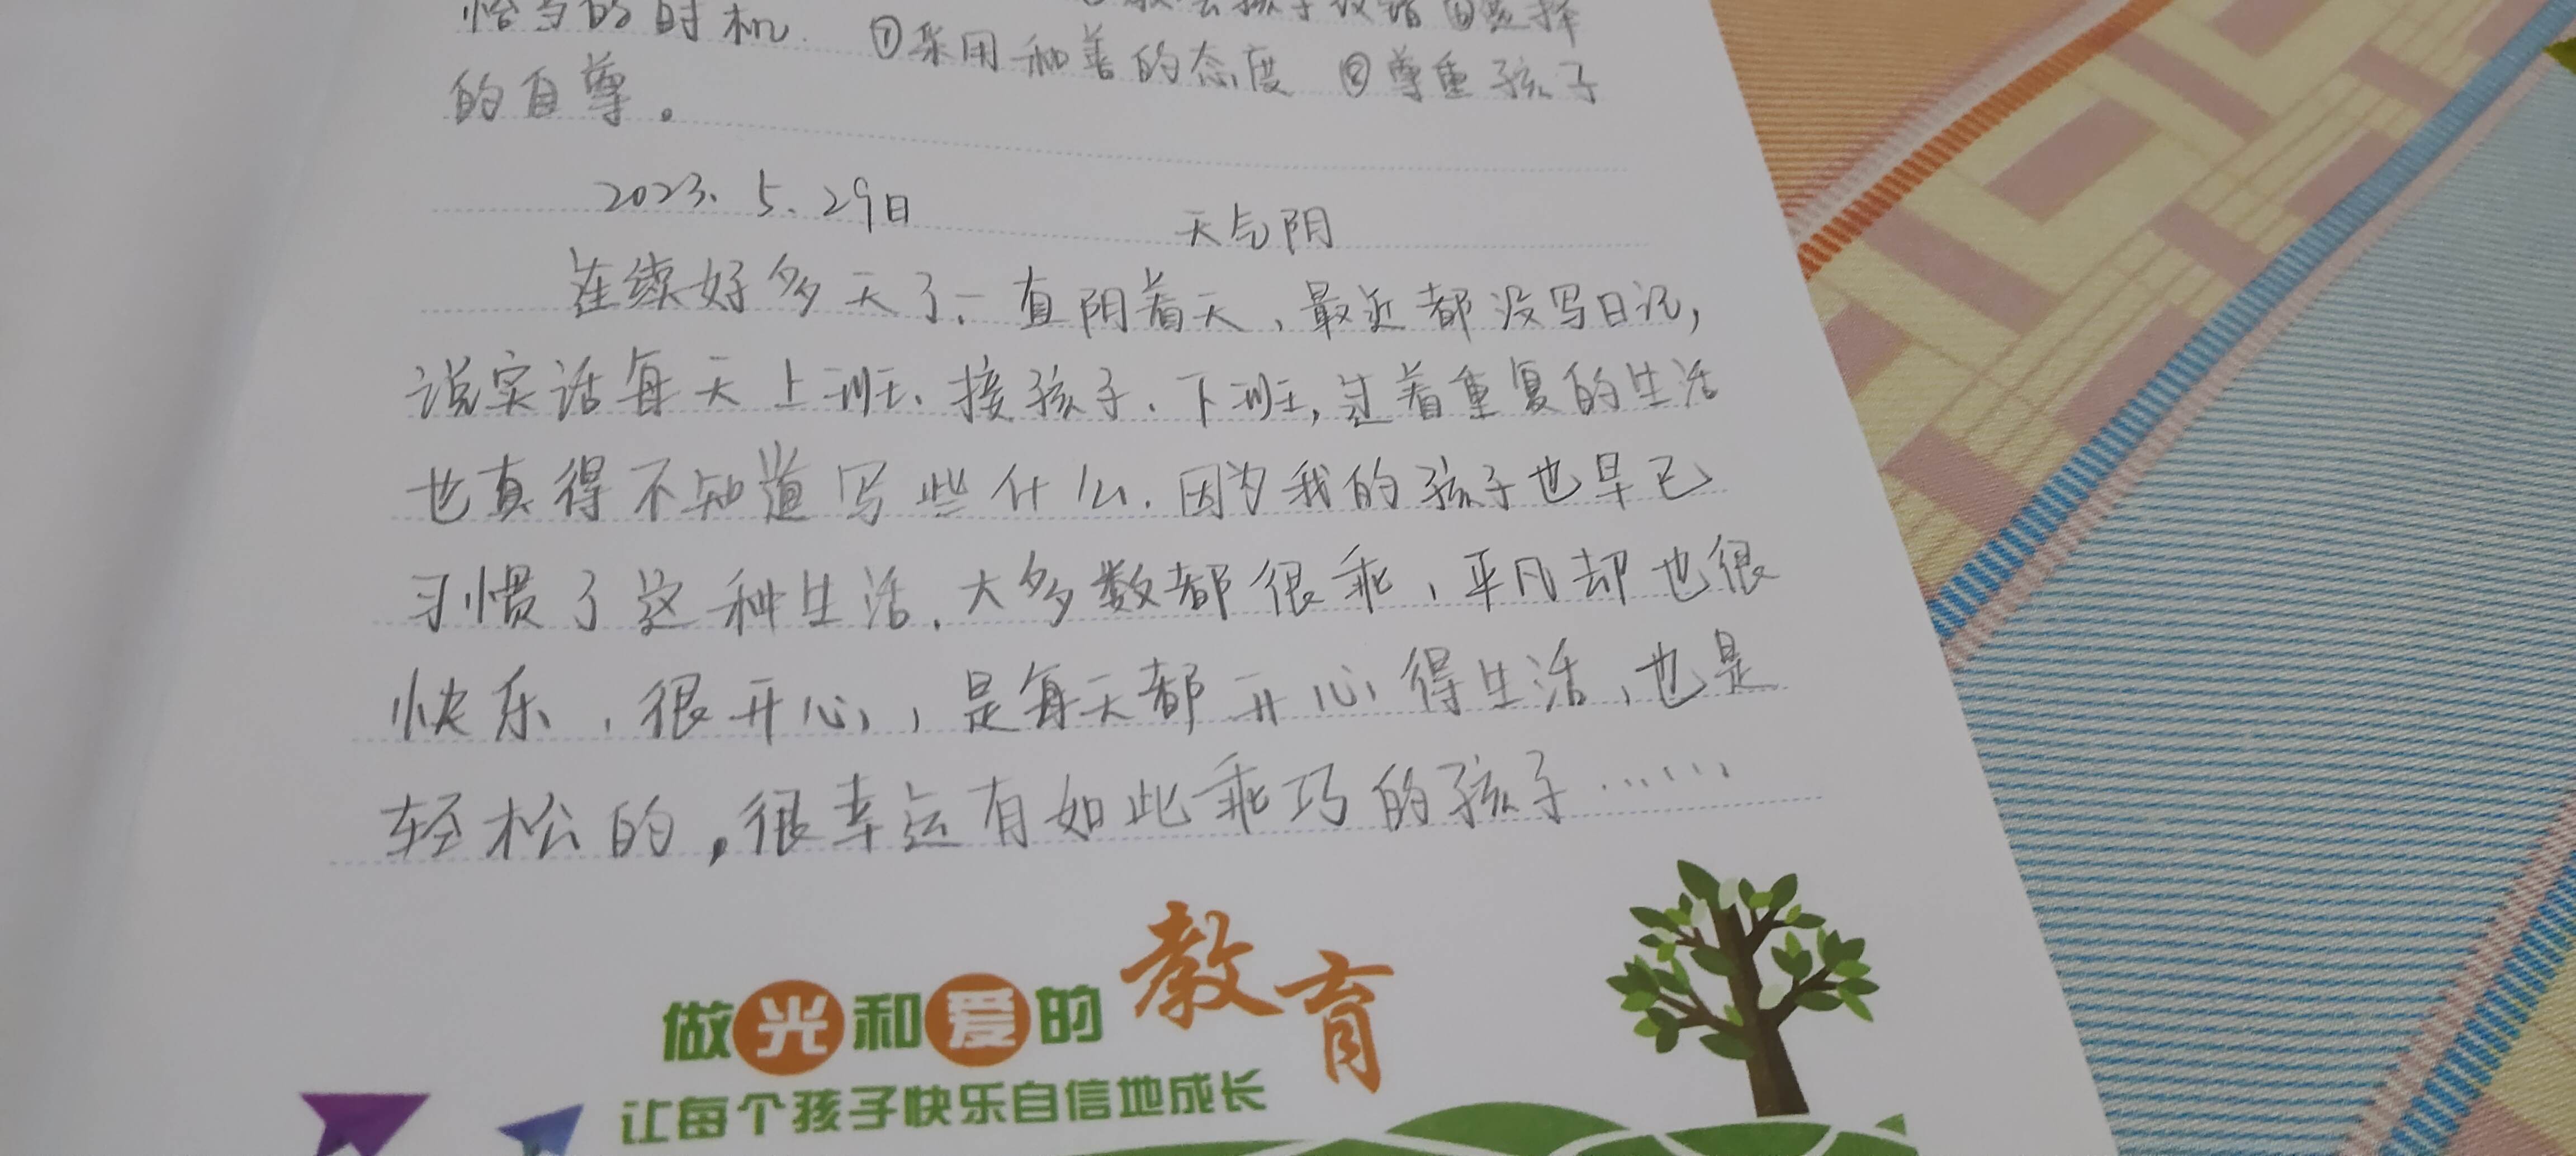 恰当的时机. ①采用和善的态度 ②尊重孩子
的自尊。
2023、5、29日 天气阴
连续好多天了、一直阴着天、最近都没写日记，
说实话每天上班、接孩子、下班，过着重复的生活
也真得不知道写些什么、因为我的孩子也早已
习惯了这种生活、大多数都很乖、平凡却也很
快乐、很开心，是每天都开心得生活、也是
轻松的，很幸运有如此乖巧的孩子……
做光和爱的教育
让每个孩子快乐自信地成长